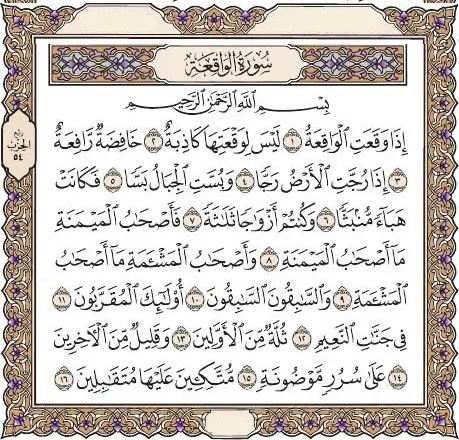 سُورَةُ الْوَاقِعَةِ
بِسْمِ اللَّهِ الرَّحْمَٰنِ الرَّحِيمِ
إِذَا وَقَعَتِ الْوَاقِعَةُ ١ لَيْسَ لِوَقْعَتِهَا كَاذِبَةٌ ٢ خَافِضَةٌ رَّافِعَةٌ
٣ إِذَا رُجَّتِ الْأَرْضُ رَجًّا ٤ وَبُسَّتِ الْجِبَالُ بَسًّا ٥ فَكَانَتْ
هَبَاءً مُّنۢبَثًّا ٦ وَكُنتُمْ أَزْوَاجًا ثَلَاثَةً ٧ فَأَصْحَابُ الْمَيْمَنَةِ
مَا أَصْحَابُ الْمَيْمَنَةِ ٨ وَأَصْحَابُ الْمَشْئَمَةِ مَا أَصْحَابُ
الْمَشْئَمَةِ ٩ وَالسَّابِقُونَ السَّابِقُونَ ١٠ أُولَٰئِكَ الْمُقَرَّبُونَ ١١
فِي جَنَّاتِ النَّعِيمِ ١٢ ثُلَّةٌ مِّنَ الْأَوَّلِينَ ١٣ وَقَلِيلٌ مِّنَ الْآخِرِينَ
١٤ عَلَىٰ سُرُرٍ مَّوْضُونَةٍ ١٥ مُّتَّكِئِينَ عَلَيْهَا مُتَقَابِلِينَ ١٦
ربع
الحزب
٥٤